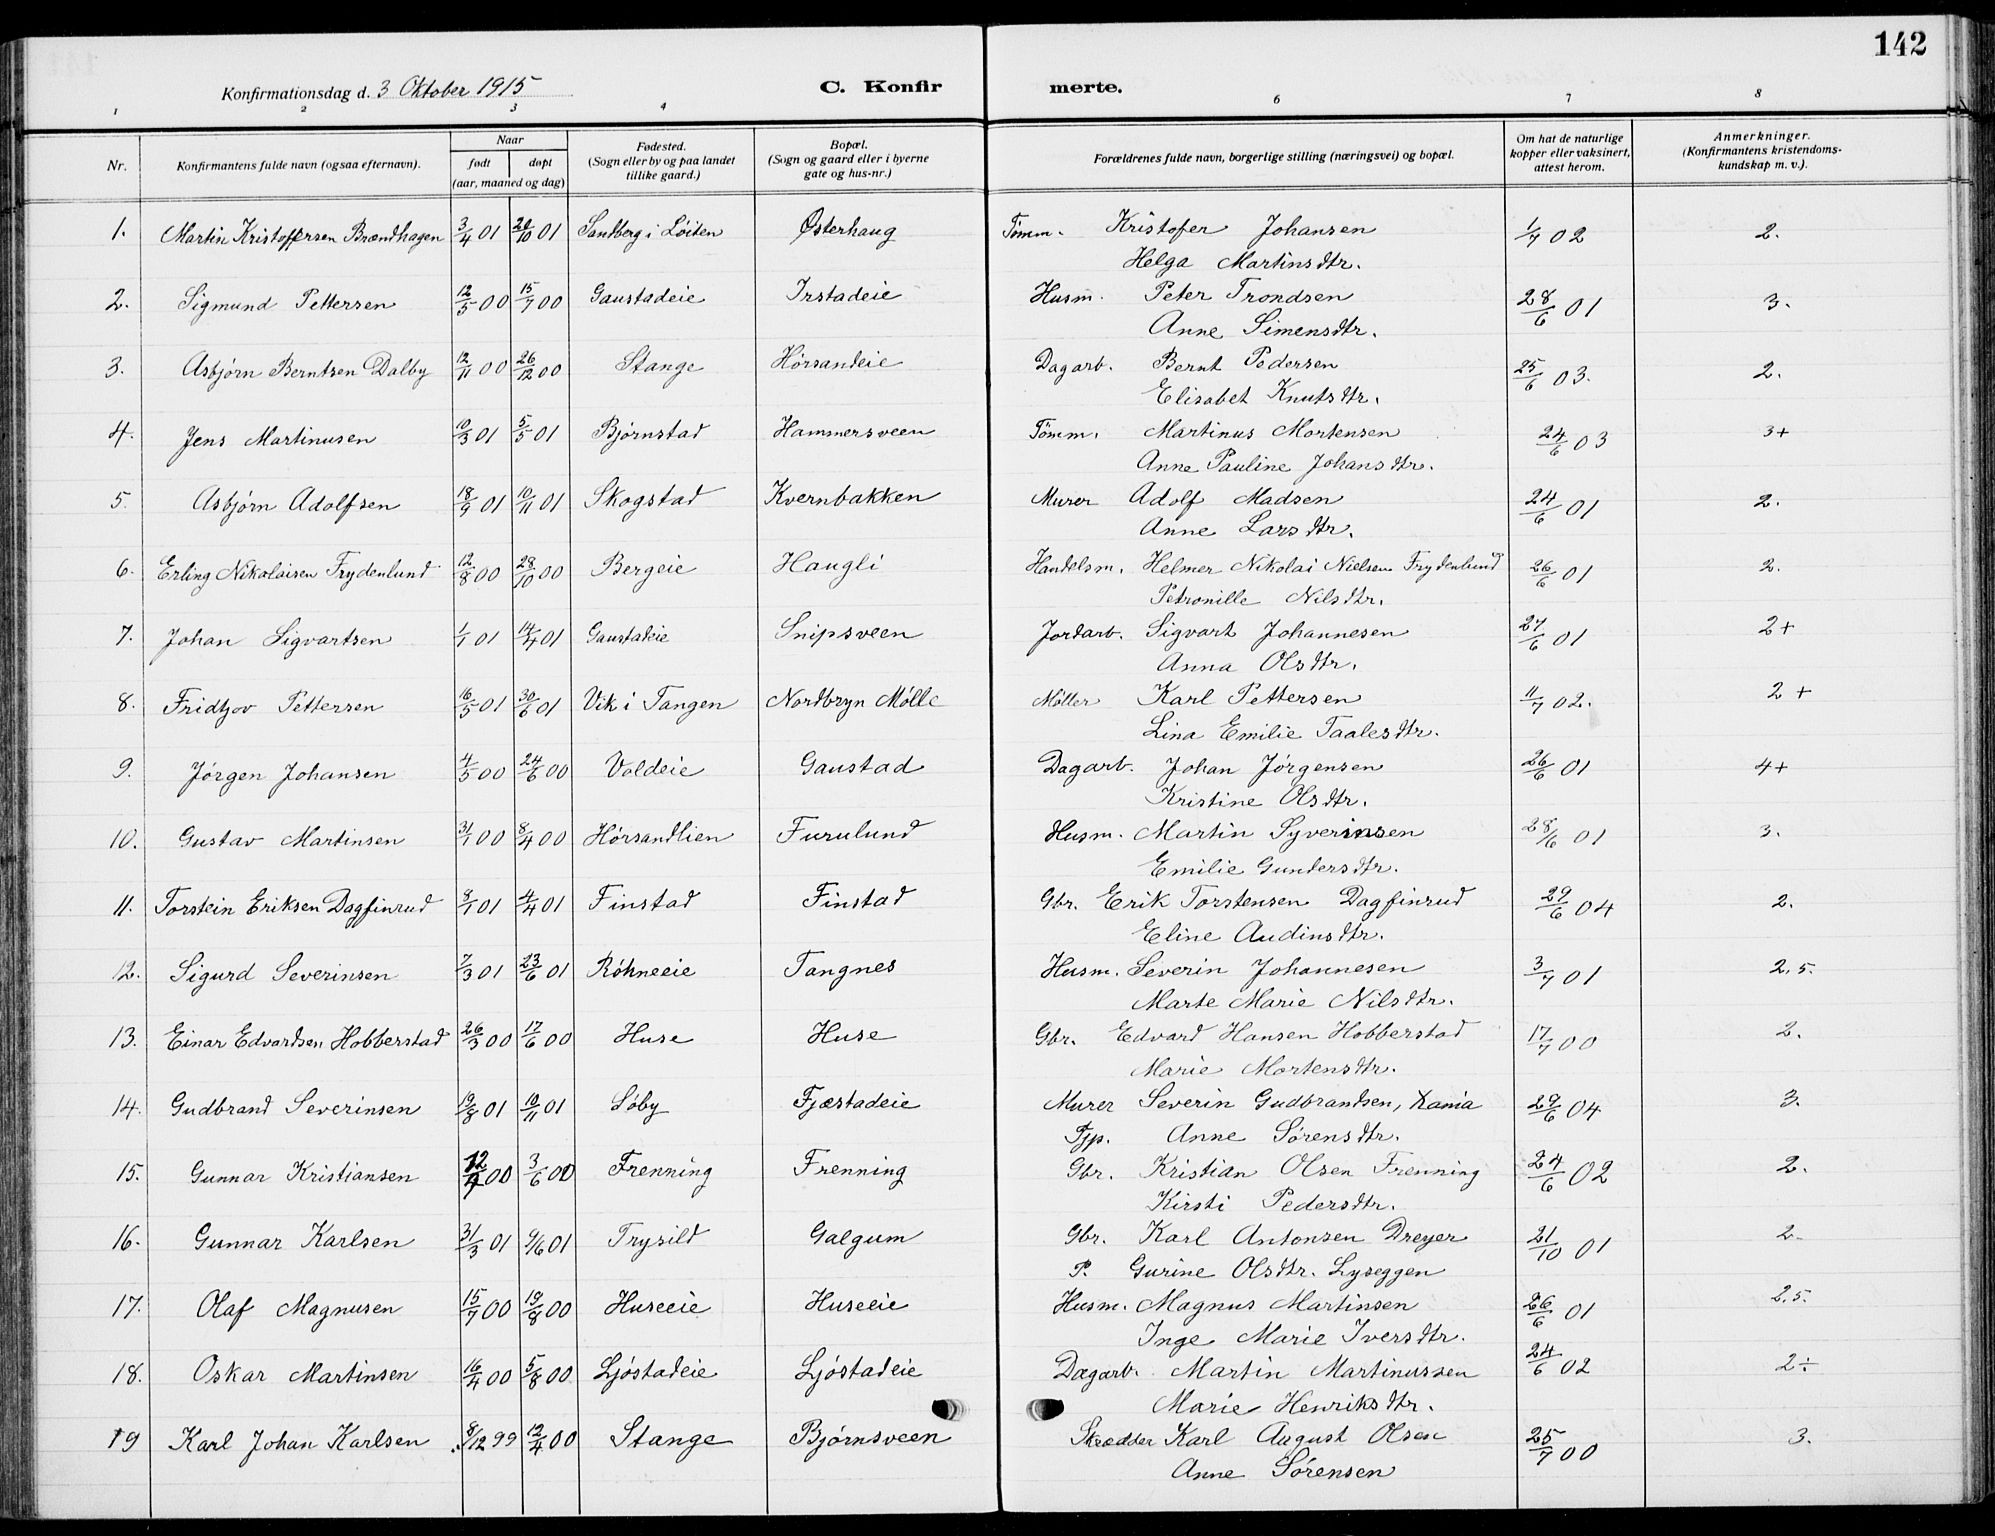 142
Konfirmationsdag d. 3 Oktober 1915 C. Konfirmerte.
1 2 3 4 6 7 8
Nr. Konfirmantens fulde navn (ogsaa efternavn). Naar født døpt (aar, maaned og dag) Fødested. (Sogn eller by og paa landet tillike gaard.) Bopæl. (Sogn og gaard eller i byerne gate og hus-nr.) Forældrenes fulde navn, borgerlige stilling (næringsvei) og bopæl. Om hat de naturlige kopper eller vaksinert, attest herom. Anmerkninger. (Konfirmantens kristendomskundskap m. v.).
1. Martin Kristoffersen Brændhagen 3/4 01 20/10 01 Sandberg i Løiten Østerhaug Tømm. Kristofer Johansen 1/7 02 2.
Helga Martinsdtr.
2. Sigmund Pettersen 12/5 00 15/7 00 Gaustadeie Irstadeie Husm. Peter Trondsen 28/6 01 3.
Anne Simensdtr.
3. Asbjørn Berntsen Dalby 12/11 00 26/12 00 Stange Hørsandeie Dagarb. Bernt Pedersen 25/6 03. 2.
Elisabet Knutsdtr.
4. Jens Martinusen 10/3 01 5/5 01 Bjørnstad Hammersveen Tømm. Martinus Mortensen 24/6 03 3+
Anne Pauline Johansdtr.
5. Asbjørn Adolfsen 18/9 01 10/11 01 Skogstad Kvernbakken Murer Adolf Madsen 24/6 01 2.
Anne Larsdtr.
6. Erling Nikolaisen Frydenlund 12/8 00 28/10 00 Bergeie Haugli Handelsm. Helmer Nikolai Nielsen Frydenlund 26/6 01 2.
Petronille Nilsdtr.
7. Johan Sigvartsen 1/1 01 14/4 01 Gaustadeie Snipsveen Jordarb. Sigvart Johannesen 27/6 01 2+
Anna Olsdtr.
8. Fridtjov Pettersen 16/5 01 30/6 01 Vik i Tangen Nordbryn Mølle Møller Karl Pettersen 11/7 02. 2+
Lina Emilie Taalesdtr.
9. Jørgen Johansen 4/5 00 24/6 00 Voldeie Gaustad Dagarb. Johan Jørgensen 26/6 01 4+
Kristine Olsdtr.
10. Gustav Martinsen 31/1 00 8/4 00 Hørsandlien Furulund Husm. Martin Syverinsen 28/6 01 3.
Emilie Gundersdtr.
11. Torstein Eriksen Dagfinrud 8/1 01 4/4 01 Finstad Finstad Gbr. Erik Torstensen Dagfinrud 29/6 04 2.
Eline Audinsdtr.
12. Sigurd Severinsen 7/3 01 23/6 01 Røhneeie Tangnes Husm. Severin Johannesen 3/7 01 2,5.
Marte Marie Nilsdtr.
13. Einar Edvardsen Hobberstad 26/3 00 17/6 00 Huse Huse Gbr. Edvard Hansen Hobberstad 17/7 00 2.
Marie Mortensdtr.
14. Gudbrand Severinsen 19/8 01 10/11 01 Søby Fjæstadeie Murer Severin Gudbrandsen, Xania 29/6 04 3.
Pjp. Anne Sørensdtr.
15. Gunnar Kristiansen 12/4 00 3/6 00 Frenning Frenning Gbr. Kristian Olsen Frenning 24/6 02 2.
Kirsti Pedersdtr.
16. Gunnar Karlsen 31/3 01 9/6 01 Trysild Galgum Gbr. Karl Antonsen Dreyer 21/10 01 2-
P. Gurine Olsdtr. Lyseggen
17. Olaf Magnusen 15/7 00 19/8 00 Huseeie Huseeie Husm. Magnus Martinsen 26/6 01 2,5.
Inge Marie Iversdtr.
18. Oskar Martinsen 16/4 00 5/8 00 Ljøstadeie Ljøstadeie Dagarb. Martin Martinussen 24/6 02 2÷
Marie Henriksdtr.
19 Karl Johan Karlsen 8/12 99 12/4 00 Stange Bjørnsveen Skrædder Karl August Olsen 25/7 00 3.
Anne Sørensen